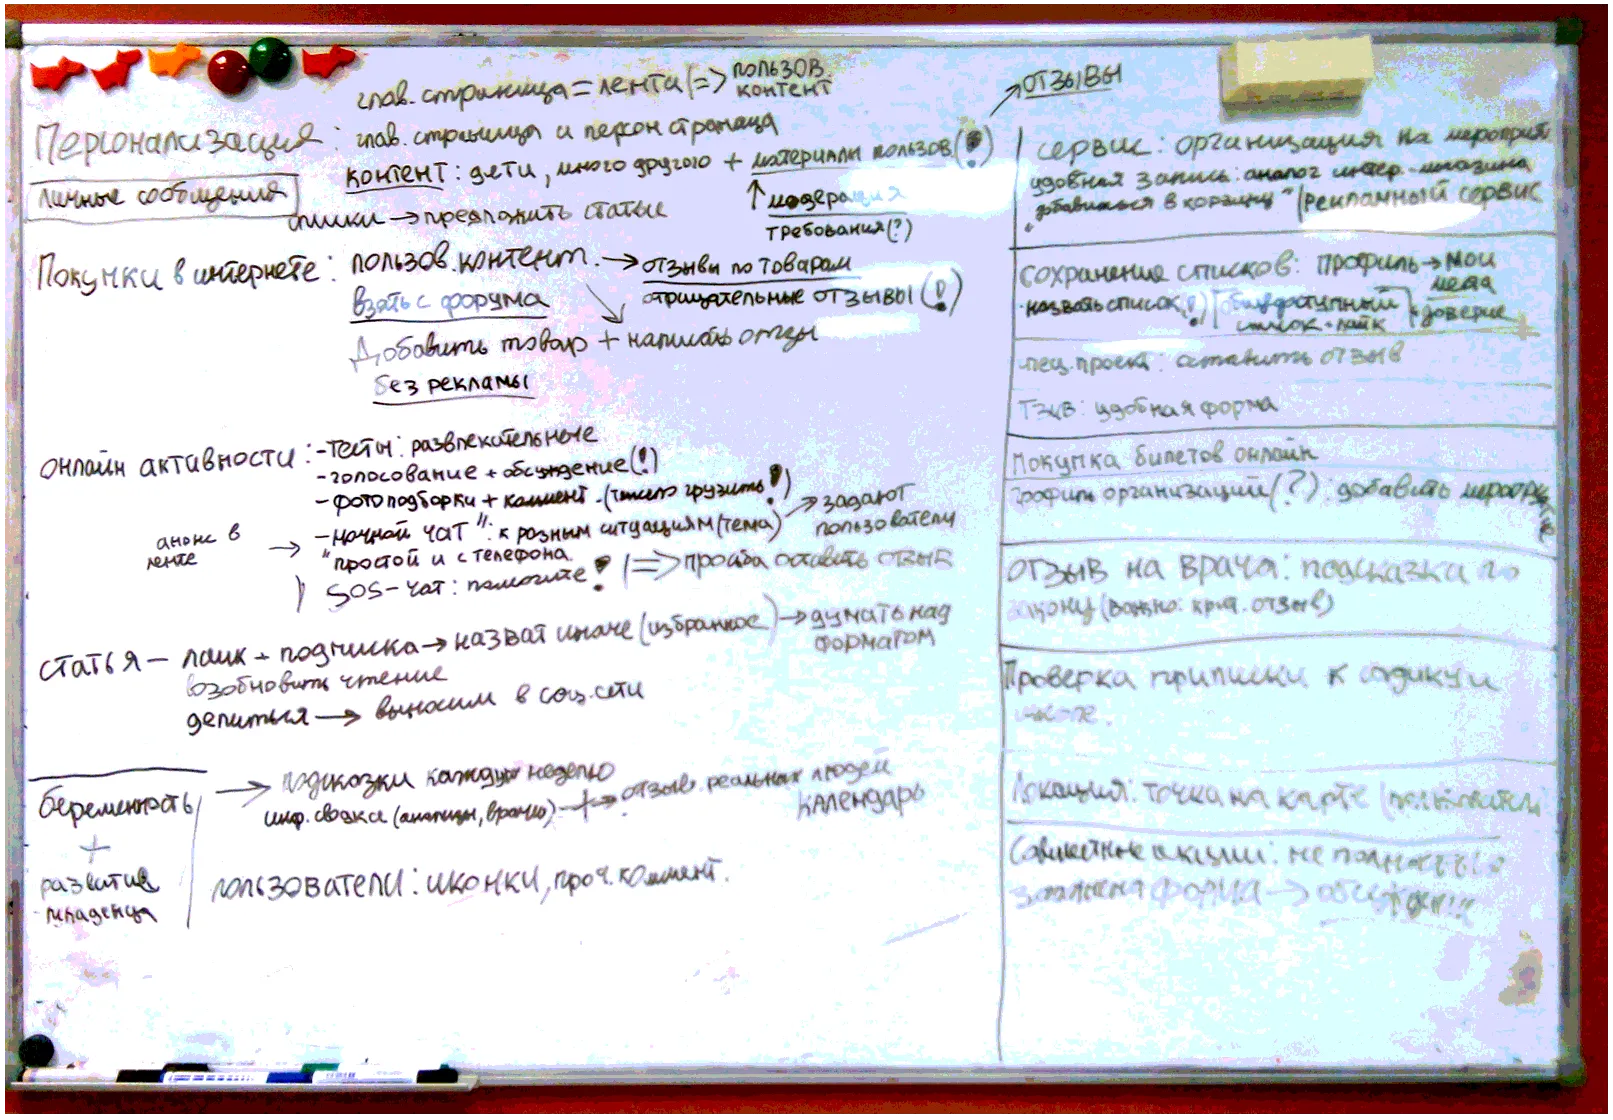 глав. страница = лента (=> пользов. контент
Персонализация: глав. страница и персон страница
контент: дети, много другого + материалы пользов (!)
личные сообщения
списки → предложить статьи
↑ модерация
требования (?)
Покупки в интернете: пользов. контент. → отзывы по товарам
взять с форума
отрицательные отзывы (!)
Добавить товар + написать отзы
без рекламы
онлайн активности: - тесты: развлекательные
- голосование + обсуждение (!)
- фотоподборки + коммент. (тяжело грузить!)
- "ночной чат": к разным ситуациям (тема) → задают пользователи
анонс в ленте →
простой и с телефона
SOS-чат: помогите! | => просьба оставить отзыв
статья — лайк + подписка → назват иначе (избранное) → думать над форматом
возобновить чтение
делиться → выносим в соц. сети
беременность
+
развитие младенца
→ подсказки каждую неделю
инф. сводка (анализы, врачи) + → отзыв реальных людей
календарь
пользователи: иконки, проч. коммент.
отзывы
сервис: организация на мероприят
удобная запись: аналог интер-магазина
"добавиться в корзину" / рекламный сервис
сохранение списков: профиль → мои места
назвать список (!) общедоступный список-лайк доверие
спец. проект: оставить отзыв
тзыв: удобная форма
Покупка билетов онлайн
профиль организации (?): добавить меропри
отзыв на врача: подсказка по
закону (важно: крит. отзыв)
Проверка приписки к
Локация: точка на карте (пользователи
Совместные акции: не полностью
форма →